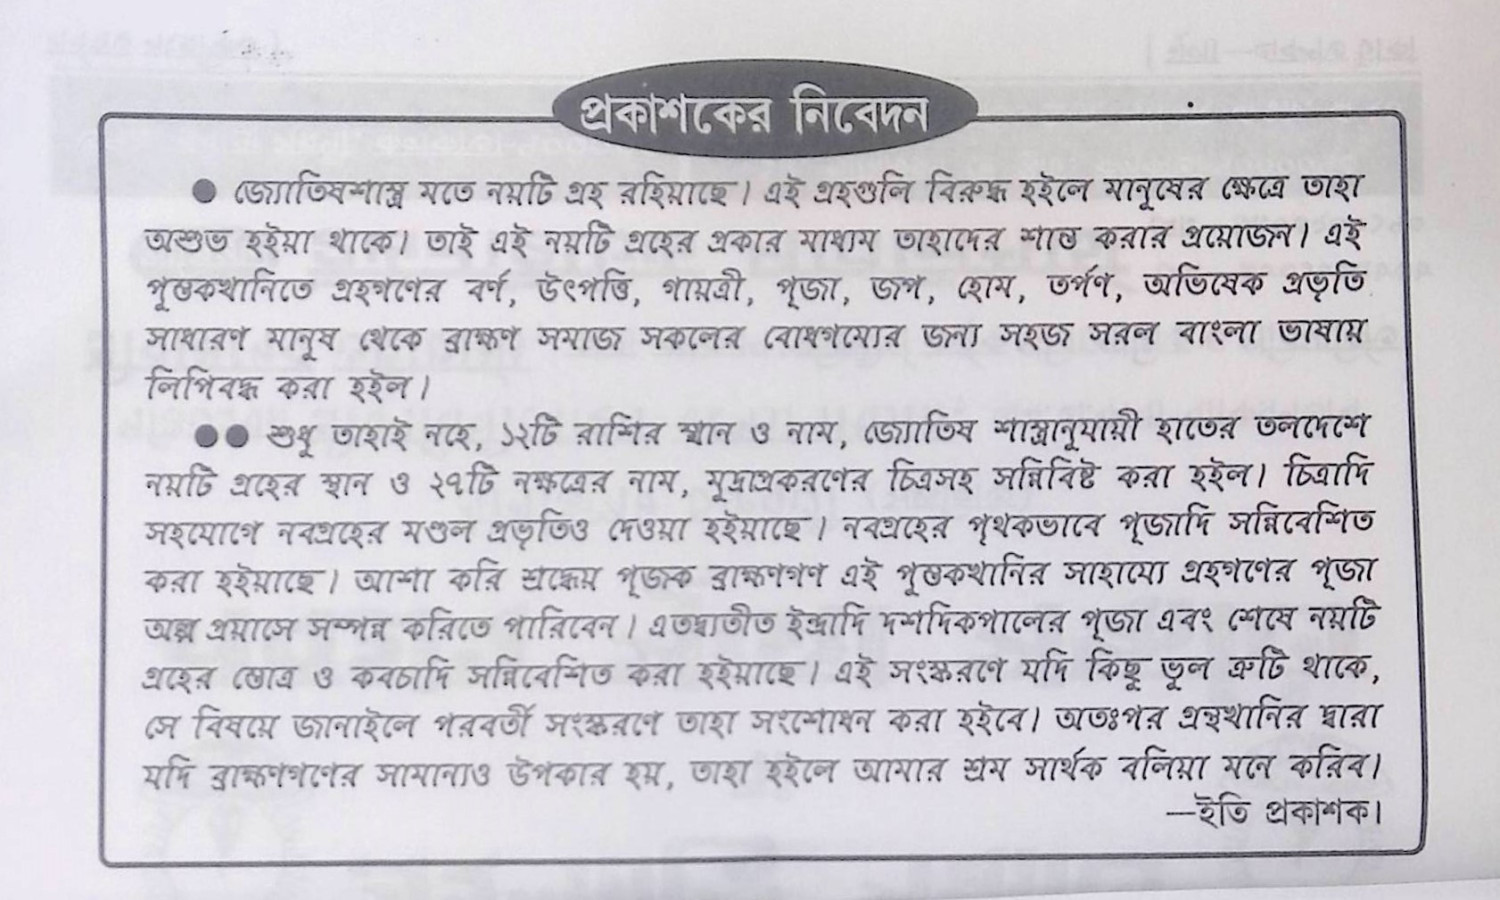 প্রকাশকের নিবেদন
● জ্যোতিষশাস্ত্র মতে নয়টি গ্রহ রহিয়াছে। এই গ্রহগুলি বিরুদ্ধ হইলে মানুষের ক্ষেত্রে তাহা
অশুভ হইয়া থাকে। তাই এই নয়টি গ্রহের প্রকার মাধ্যম তাহাদের শান্ত করার প্রয়োজন। এই
পুস্তকখানিতে গ্রহগণের বর্ণ, উৎপত্তি, গায়ত্রী, পূজা, জপ, হোম, তর্পণ, অভিষেক প্রভৃতি
সাধারণ মানুষ থেকে ব্রাহ্মণ সমাজ সকলের বোধগম্যের জন্য সহজ সরল বাংলা ভাষায়
লিপিবদ্ধ করা হইল।
●● শুধু তাহাই নহে, ১২টি রাশির স্থান ও নাম, জ্যোতিষ শাস্ত্রানুযায়ী হাতের তলদেশে
নয়টি গ্রহের স্থান ও ২৭টি নক্ষত্রের নাম, মুদ্রাপ্রকরণের চিত্রসহ সন্নিবিষ্ট করা হইল। চিত্রাদি
সহযোগে নবগ্রহের মণ্ডল প্রভৃতিও দেওয়া হইয়াছে। নবগ্রহের পৃথকভাবে পূজাদি সন্নিবেশিত
করা হইয়াছে। আশা করি শ্রদ্ধেয় পূজক ব্রাহ্মণগণ এই পুস্তকখানির সাহায্যে গ্রহগণের পূজা
অল্প প্রয়াসে সম্পন্ন করিতে পারিবেন। এতদ্ব্যতীত ইন্দ্রাদি দশদিকপালের পূজা এবং শেষে নয়টি
গ্রহের স্তোত্র ও কবচাদি সন্নিবেশিত করা হইয়াছে। এই সংস্করণে যদি কিছু ভুল ত্রুটি থাকে,
সে বিষয়ে জানাইলে পরবর্তী সংস্করণে তাহা সংশোধন করা হইবে। অতঃপর গ্রন্থখানির দ্বারা
যদি ব্রাহ্মণগণের সামান্যও উপকার হয়, তাহা হইলে আমার শ্রম সার্থক বলিয়া মনে করিব।
—ইতি প্রকাশক।